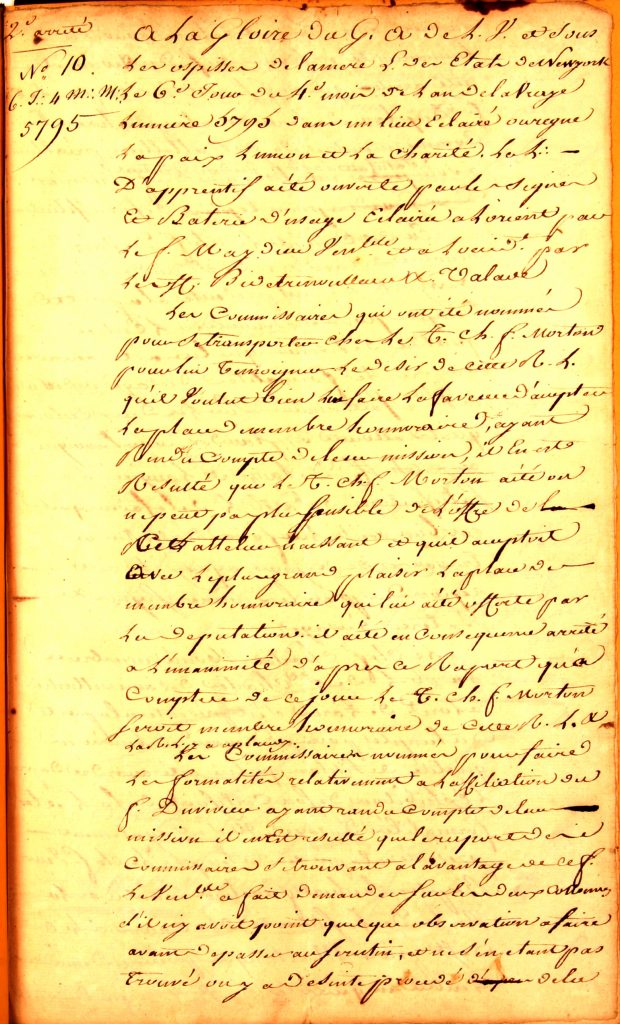 2e arrêté
No 10.
6e J: 4 m: M:
5795
A La Gloire du G. A de L. V. et sous
Les ospisses de lamere L. des Etats de Newyork
Le 6e Jour du 4e mois de Lan de la Vraye
Lumiere 5795 dans un lieu Eclairé ou regne
La paix Lunion et La Charité. La L: —
D'apprentif a été ouverte par les signes
Et Baterie d'usage Eclairée a Lorient par
Le f. Maydieu Venble et a Loccidt par
Les ff.
Les Commissaires qui ont été nommés
pour se transporter chez Le T. Ch. f. Morton
pour lui Temoigner Le desir de cette R. L.
qu'il Voulut bien lui faire La faveur d'accepter
La place de membre honnoraire, ayant
Rendu Compte de leur mission, il En est
Resulté que Le T. Ch. f. Morton a été on
ne peut pas plus sensible de L'offre de la
Cet attelier naissant et quil acceptoit
avec Le plus grand plaisir La place de
membre honnoraire qui lui a été offerte par
La deputation. il a été en Consequence arrêté
a L'unanimité d'apres ce Raport qu'a
Compter de ce jour Le T. Ch. f. Morton
seroit membre honnoraire de Cette R. L. &
La R. L. y a aplaudi.
Les Commissaires nommés pour faire
Les formalités relativement a Laffiliation du
f. Durivieu ayant rendu Compte de leur
mission il en Est resulté que le raport des
Commissaires se trouvant a lavantage de ce f.
Le Venble a fait demander sur les deux colonnes
s'il n'y avoit point quelque observation a faire
avant de passer au scrutin, et ne s'en etant pas
Trouvé on y a de suite procedé de la